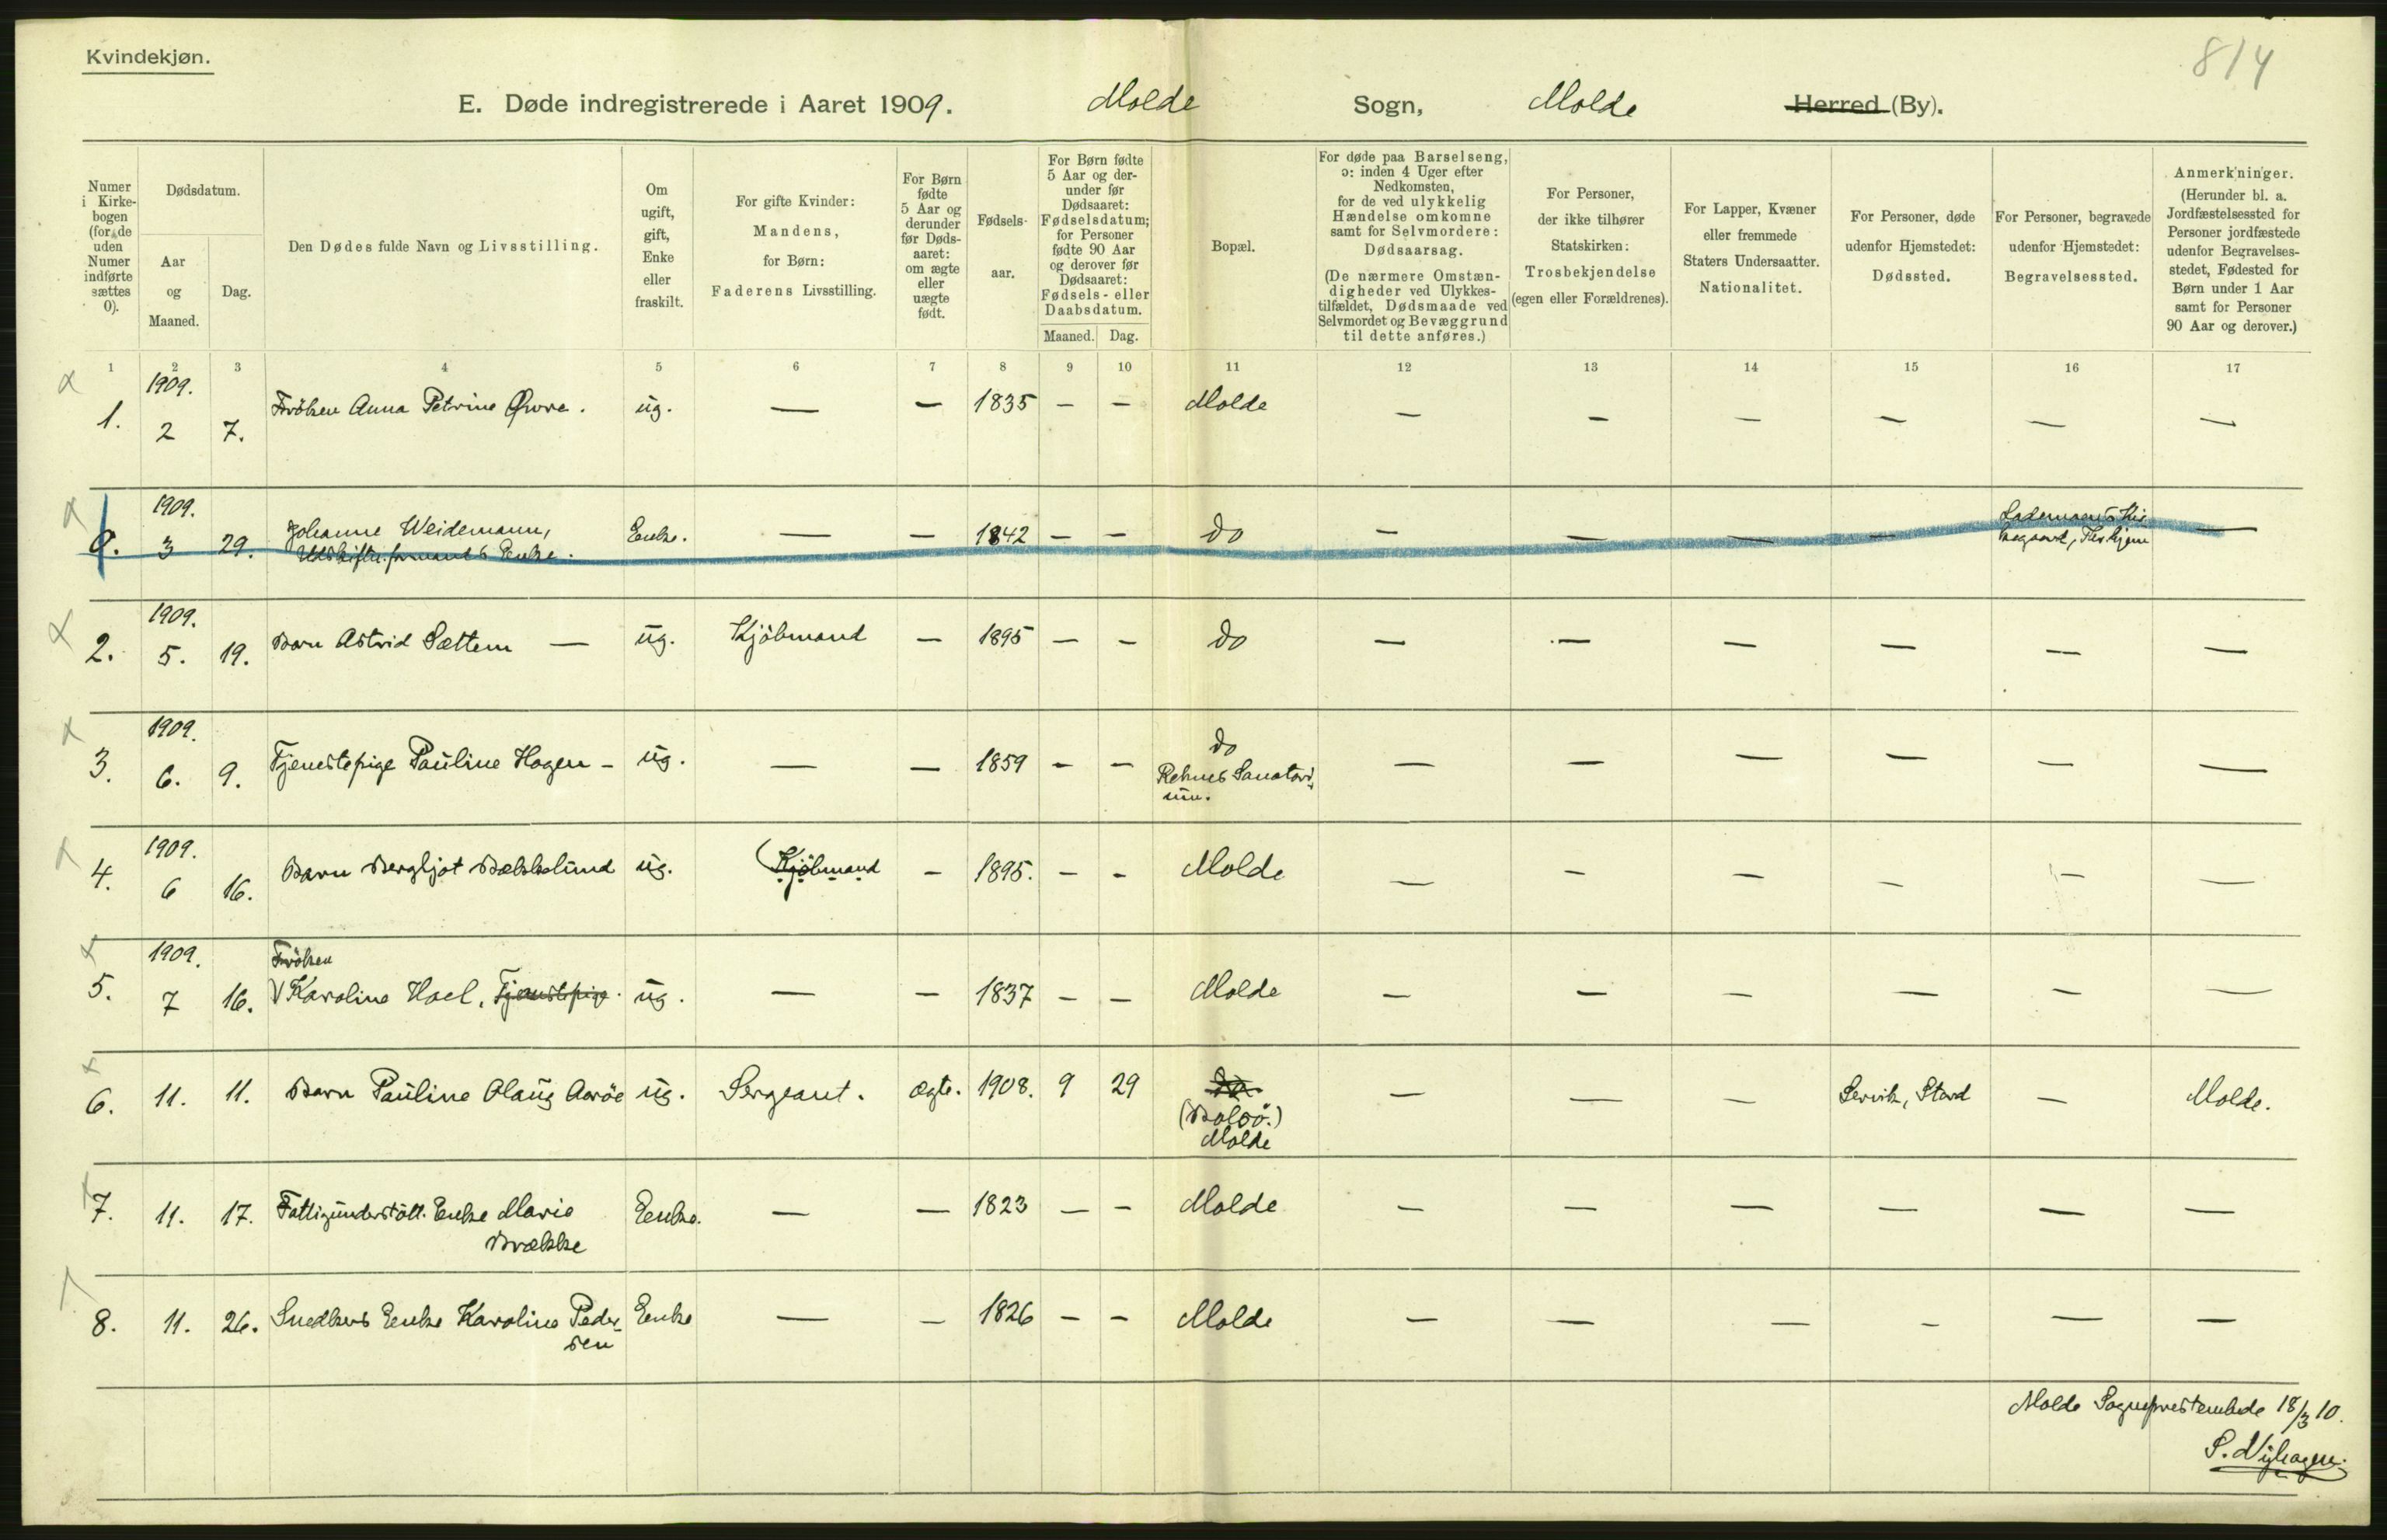 Kvindekjøn.
814
E. Døde indregistrerede i Aaret 1909. Molde Sogn, Molde Herred (By).
Numer i Kirkebogen (for de uden Numer indførte sættes 0).
Dødsdatum.
Aar og Maaned.
Dag.
Den Dødes fulde Navn og Livsstilling.
Om ugift, gift, Enke eller fraskilt.
For gifte Kvinder: Mandens, for Børn: Faderens Livsstilling.
For Børn fødte 5 Aar og derunder før Dødsaaret: om ægte eller uægte født.
Fødselsaar.
For Børn fødte 5 Aar og derunder før Dødsaaret: Fødselsdatum; for Personer fødte 90 Aar og derover før Dødsaaret: Fødsels- eller Daabsdatum.
Maaned. Dag.
Bopæl.
For døde paa Barselseng, ɔ: inden 4 Uger efter Nedkomsten, for de ved ulykkelig Hændelse omkomne samt for Selvmordere: Dødsaarsag. (De nærmere Omstændigheder ved Ulykkestilfældet, Dødsmaade ved Selvmordet og Bevæggrund til dette anføres.)
For Personer, der ikke tilhører Statskirken: Trosbekjendelse (egen eller Forældrenes).
For Lapper, Kvæner eller fremmede Staters Undersaatter. Nationalitet.
For Personer, døde udenfor Hjemstedet: Dødssted.
For Personer, begravede udenfor Hjemstedet: Begravelsessted.
Anmerkninger. (Herunder bl. a. Jordfæstelsessted for Personer jordfæstede udenfor Begravelsesstedet, Fødested for Børn under 1 Aar samt for Personer 90 Aar og derover.)
1 2 3 4 5 6 7 8 9 10 11 12 13 14 15 16 17
1. 1909. 2 7. Fröken Anna Petrine Øvre. ug. — — 1835 — — Molde — — — — — —
0. 1909. 3 29. Johanne Weidemann, Udskiftn.formands Enke. Enke. — — 1842 — — do — — — — —
2. 1909. 5. 19. Barn Astrid Sættem — ug. Kjöbmand — 1895 — — do — — — — — —
3. 1909. 6. 9. Tjenestepige Pauline Hagen — ug. — — 1859 — — do Reknes Sanatorium. — — — — — —
4. 1909. 6 16. Barn Bergljot Bækkelund ug. Kjöbmand — 1895. — — Molde — — — — — —
5. 1909. 7 16. Fröken Karoline Hoel, Tjenestepige. ug. — — 1837 — — Molde — — — — — —
6. 11. 11. Barn Pauline Olaug Aaröe ug. Sergeant. ægte. 1908. 9 29 do (Bolsö.) Molde — — — — Molde.
7. 11. 17. Fattigunderstött. Enke Marie Brække Enke. — — 1823 — — Molde — — — — — —
8. 11. 26. Snedkers Enke Karoline Pedersen Enke — — 1826 — — Molde — — — — — —
Molde Sogneprestembede 18/3 10.